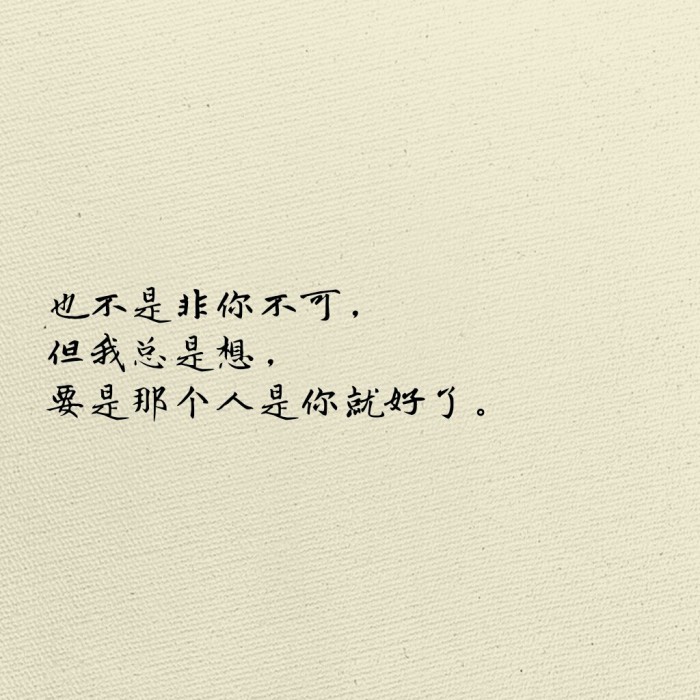 也不是非你不可，
但我总是想，
要是那个人是你就好了。